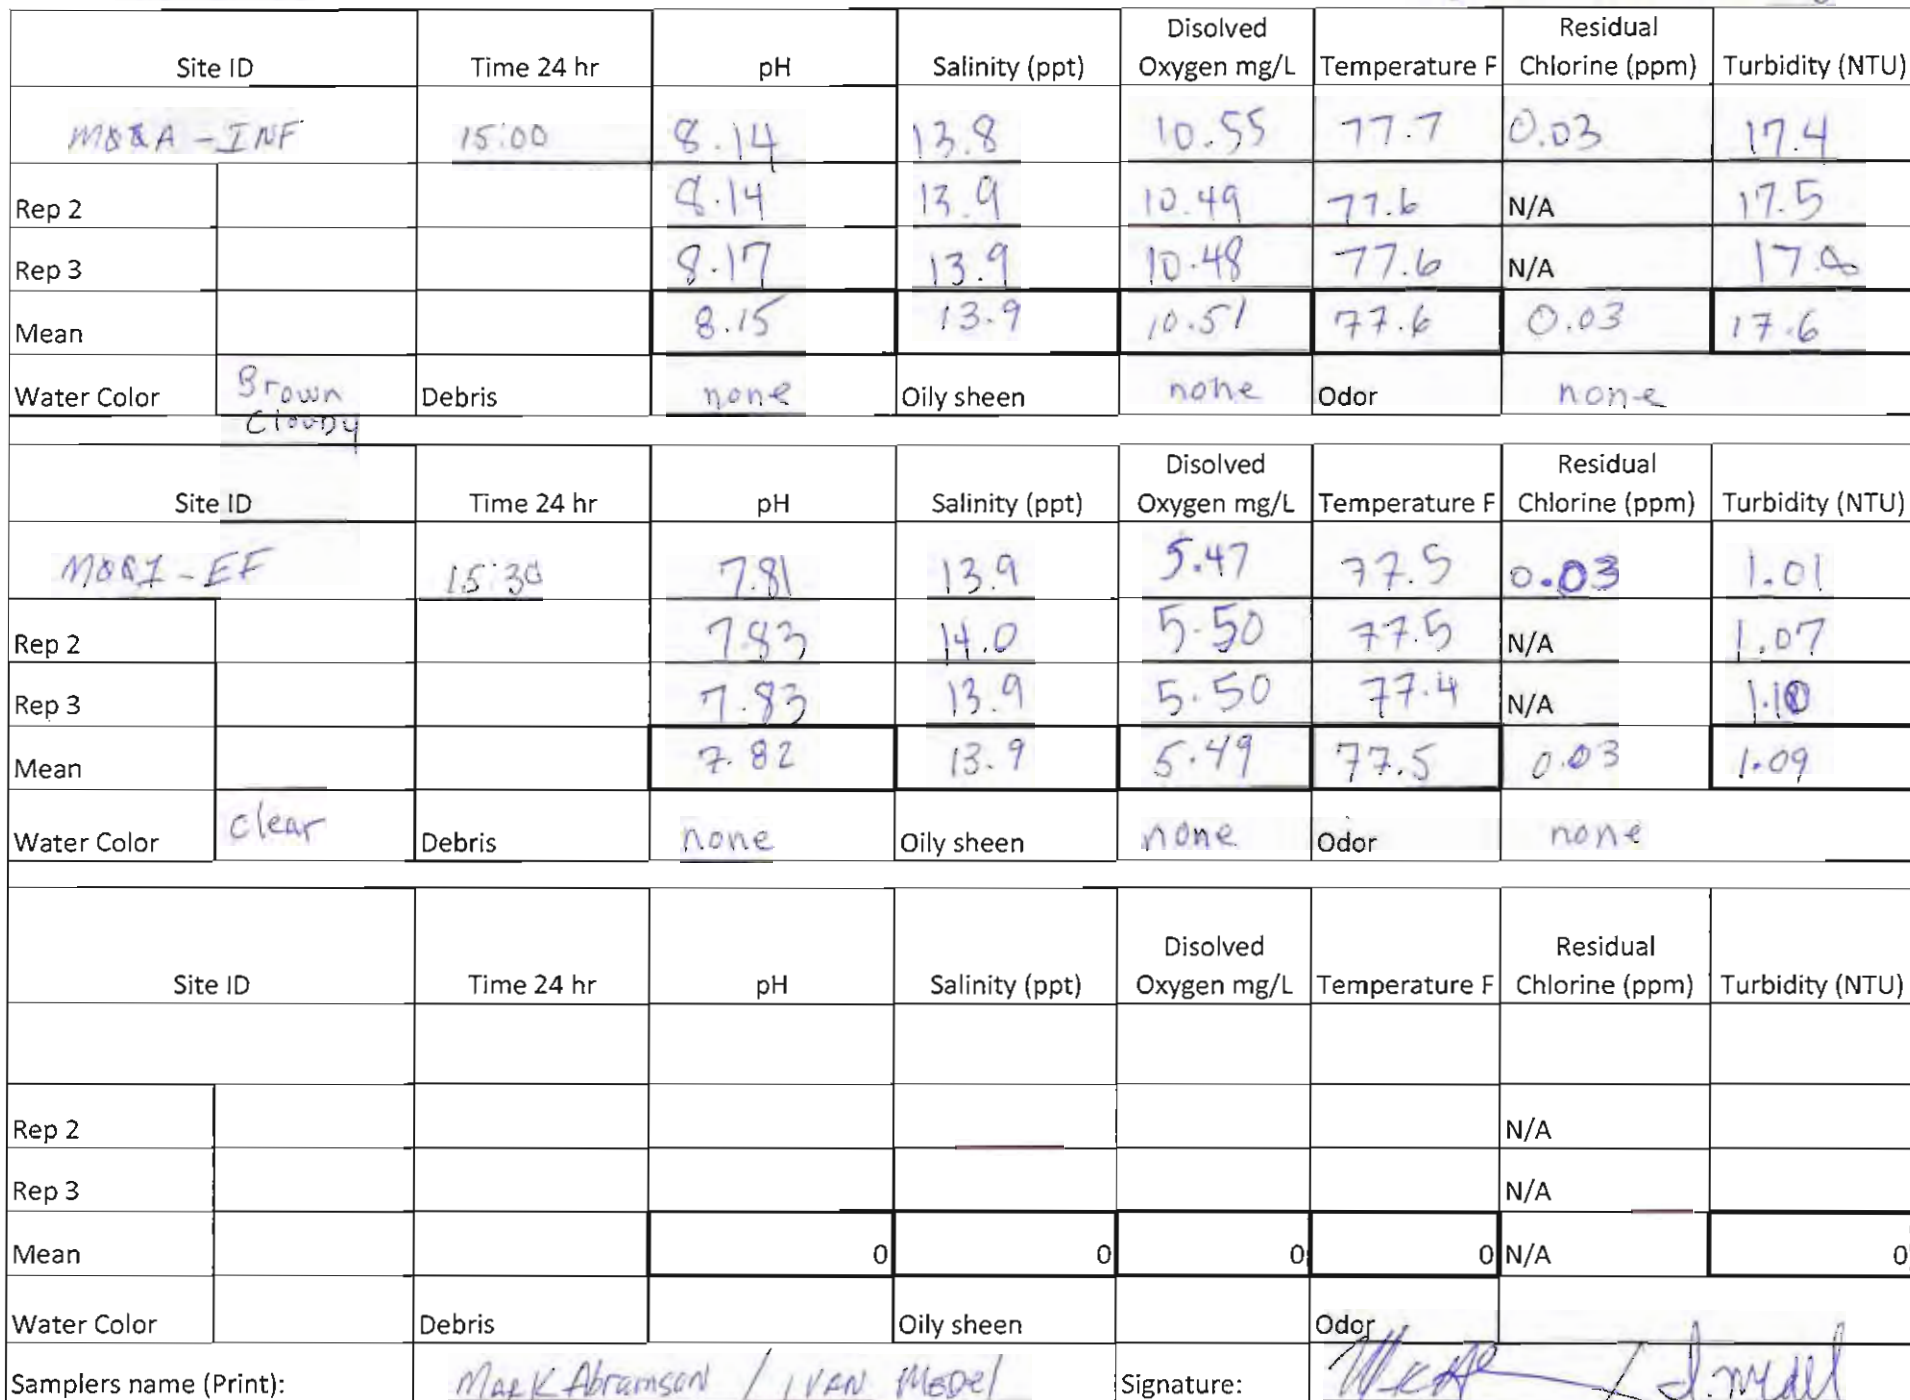 Site ID Time 24 hr pH Salinity (ppt) Disolved Oxygen mg/L Temperature F Residual Chlorine (ppm) Turbidity (NTU)
15:00 8.14 13.8 10.55 77.7 0.03 17.4
Rep 2 8.14 13.9 10.49 77.6 N/A 17.5
Rep 3 8.17 13.9 10.48 77.6 N/A
Mean 8.15 13.9 10.51 77.6 0.03 17.6
Water Color Brown Cloudy Debris none Oily sheen none Odor none
Site ID Time 24 hr pH Salinity (ppt) Disolved Oxygen mg/L Temperature F Residual Chlorine (ppm) Turbidity (NTU)
15:30 7.81 13.9 5.47 77.5 0.03 1.01
Rep 2 7.83 14.0 5.50 77.5 N/A 1.07
Rep 3 7.83 13.9 5.50 77.4 N/A 1.10
Mean 7.82 13.9 5.49 77.5 0.03 1.09
Water Color clear Debris none Oily sheen none Odor none
Site ID Time 24 hr pH Salinity (ppt) Disolved Oxygen mg/L Temperature F Residual Chlorine (ppm) Turbidity (NTU)
Rep 2 N/A
Rep 3 N/A
Mean 0 0 0 0 N/A 0
Water Color Debris Oily sheen Odor
Samplers name (Print): Mark Abramson / IVAN MEDEL Signature: